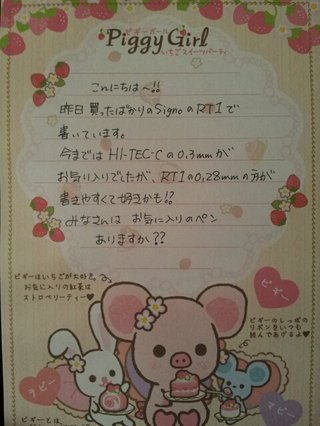 ピギーガール
Piggy Girl
いちごスイーツパーティ
こんにちは〜!!
昨日買ったばかりのSignoのRT1で
書いています。
今まではHI-TEC-Cの0.3mmが
お気に入りでしたが、RT1の0.28mmの方が
書きやすくて好きかも!?
みなさんは お気に入りのペン
ありますか??
ピギーはいちごが大好き。
お気に入りの紅茶は
ストロベリーティー♥
ピギー
ピギーのしっぽの
リボンをいつも
結んであげるよ♥
ラビー
マビー
ピギーとは、